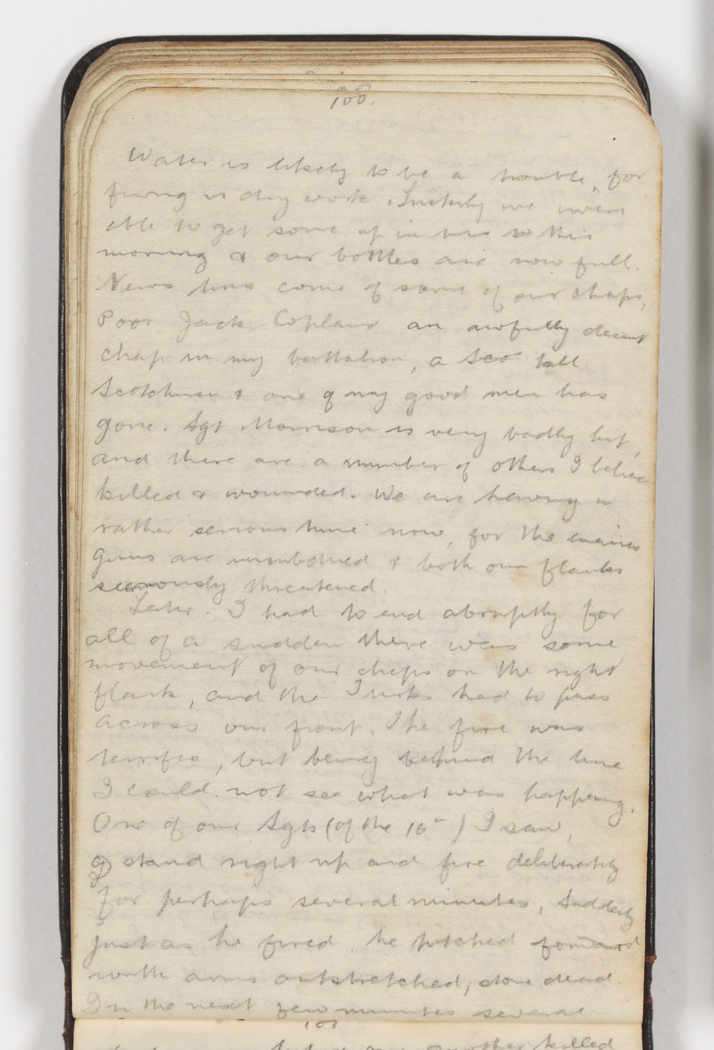 108.
Water is likely to be a trouble, for
firing is dry work. Luckily we were
able to get some up in tins to this
morning & our bottles are now full.
News has come of some of our chaps,
Poor Jack Copland an awfully decent
chap in my battalion, a Sco tall
Scotchman & one of my good men has
gone. Sgt Morrison is very badly hit,
and there are a number of others I believe
killed & wounded. We are having a
rather serious time now, for the enemies
guns are unsubdued & both our flanks
seriously threatened.
Later. I had to end abruptly for
all of a sudden there was some
movement of our chaps on the right
flank, and the Turks had to pass
across our front. The fire was
terrific, but being behind the line
I could not see what was happening.
One of our Sgts (of the 16th) I saw,
stand right up and fire deliberately
for perhaps several minutes, Suddenly
just as he fired he pitched forward
with arms outstretched, stone dead.
In the next few minutes several
109
another killed